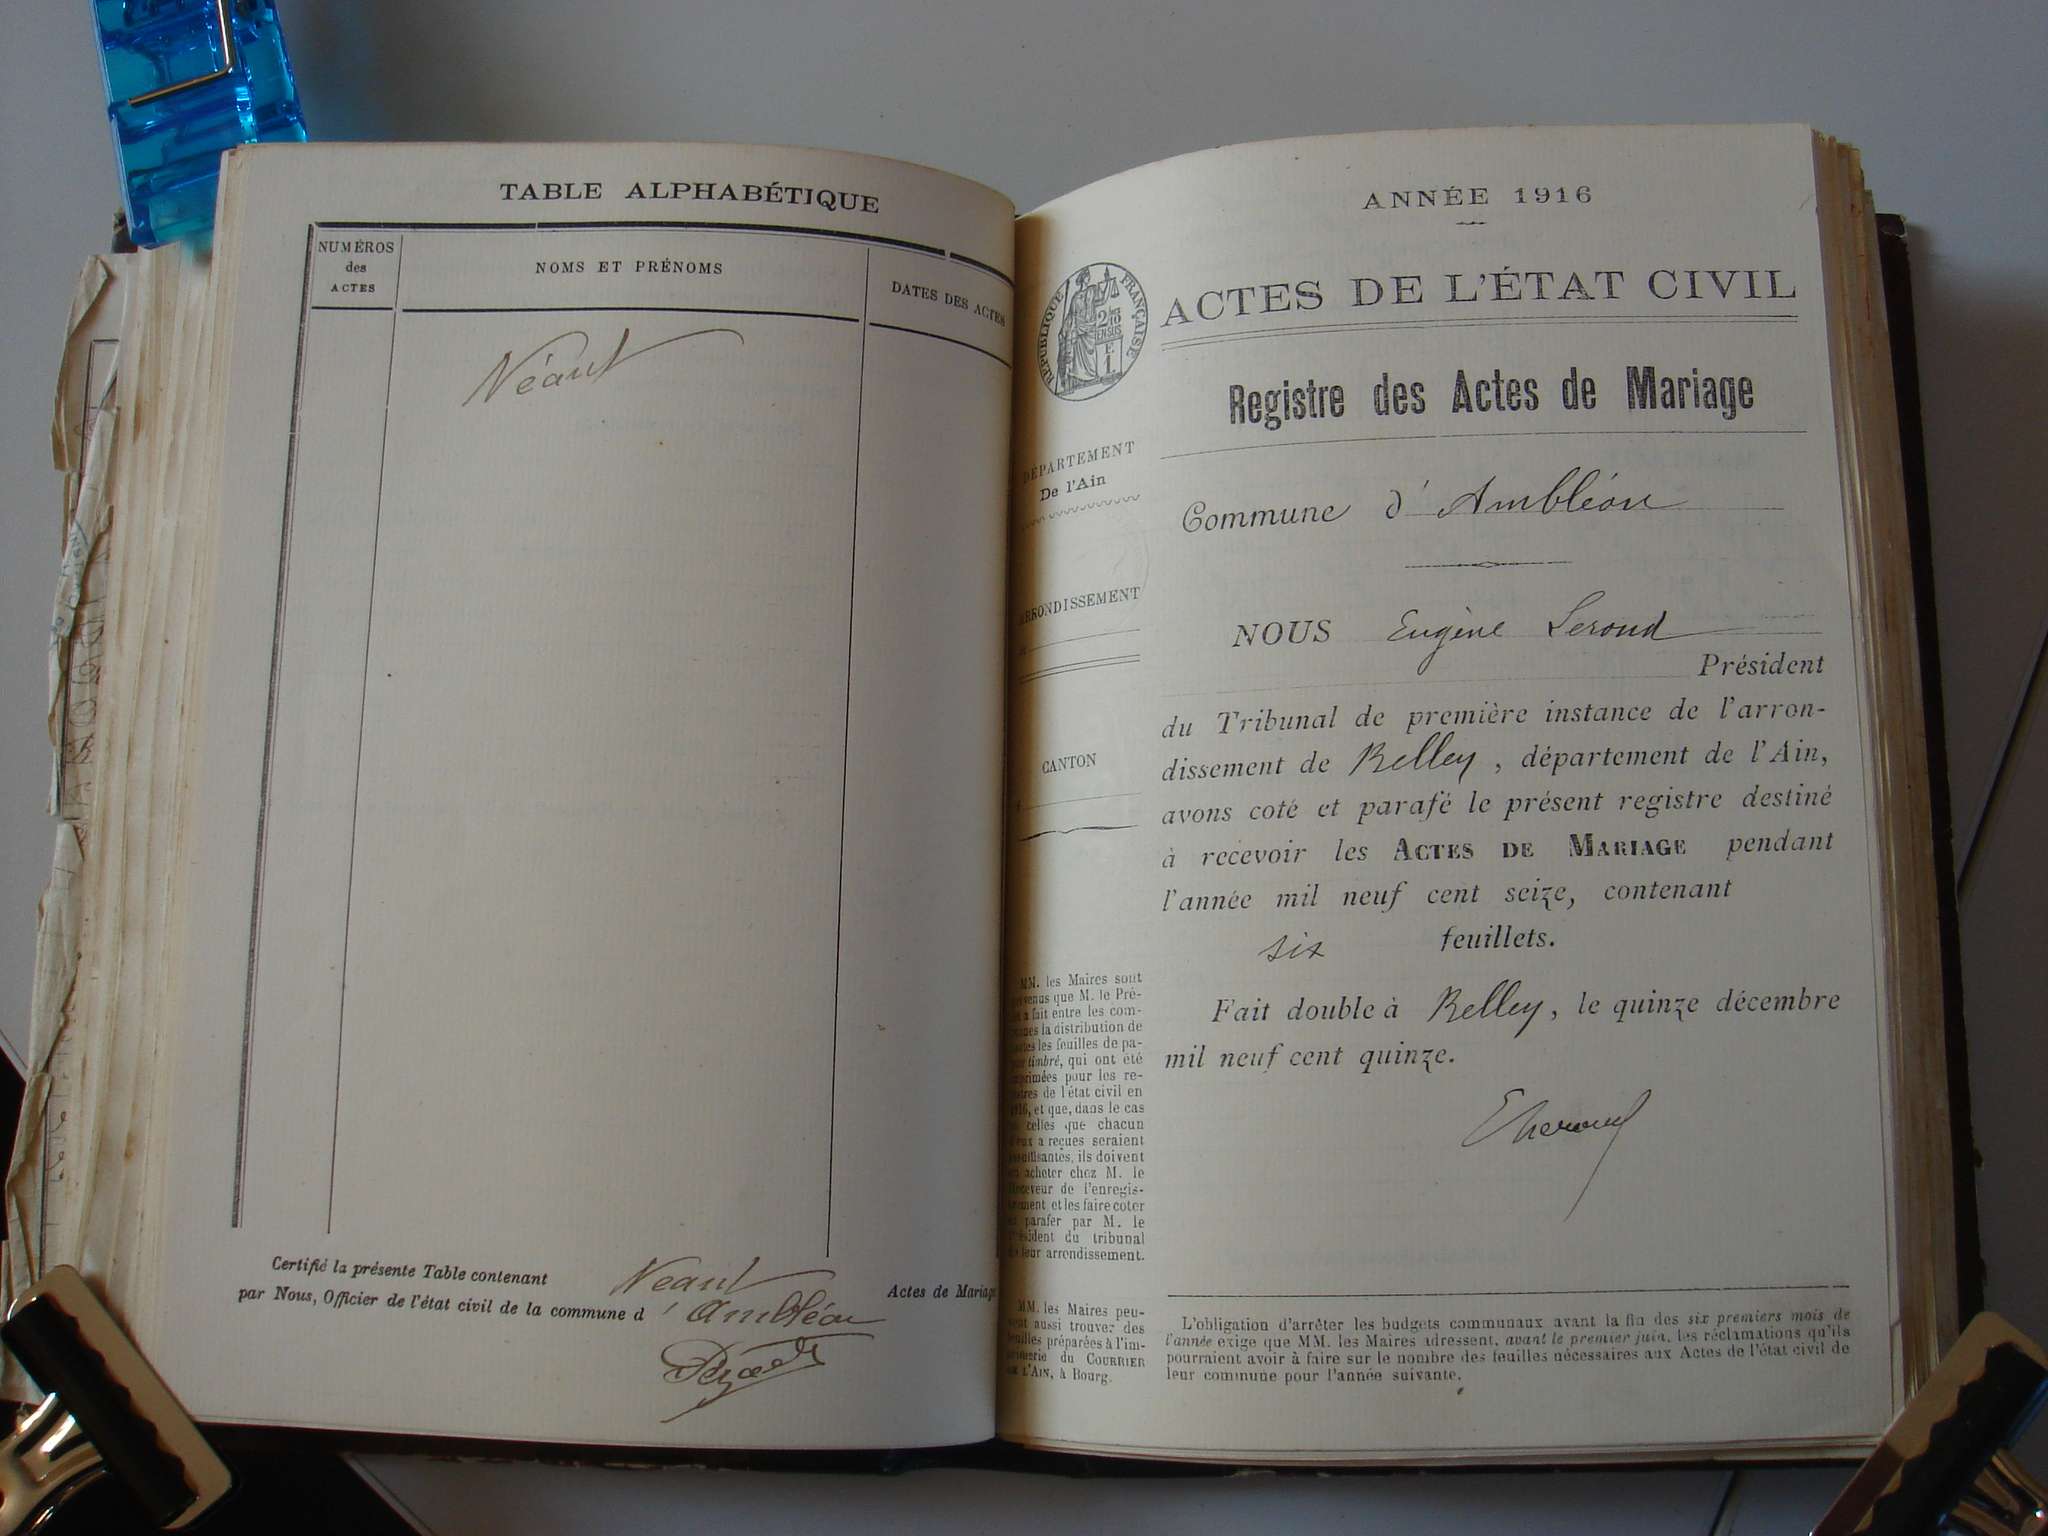 TABLE ALPHABÉTIQUE
NUMÉROS
des
ACTES
NOMS ET PRÉNOMS
DATES DES ACTES
Néant
Certifié la présente Table contenant Néant Actes de Mariage
par Nous, Officier de l'état civil de la commune d' Ambléon
ANNÉE 1916
RÉPUBLIQUE FRANÇAISE
ACTES DE L'ÉTAT CIVIL
Registre des Actes de Mariage
DÉPARTEMENT
De l'Ain
ARRONDISSEMENT
CANTON
Commune d' Ambléon
NOUS Eugène Leroud
Président
du Tribunal de première instance de l'arron-
dissement de Belley, département de l'Ain,
avons coté et parafé le présent registre destiné
à recevoir les ACTES DE MARIAGE pendant
l'année mil neuf cent seize, contenant
six feuillets.
Fait double à Belley, le quinze décembre
mil neuf cent quinze.
MM. les Maires sont
venus que M. le Pré-
a fait entre les com-
la distribution de
les feuilles de pa-
timbré, qui ont été
primées pour les re-
de l'état civil en
1916, et que, dans le cas
celles que chacun
a reçues seraient
ils doivent
acheter chez M. le
Receveur de l'enregis-
et les faire coter
parafer par M. le
Président du tribunal
leur arrondissement.
MM. les Maires peu-
aussi trouver des
feuilles préparées à l'im-
primerie du COURRIER
DE L'AIN, à Bourg.
L'obligation d'arrêter les budgets communaux avant la fin des six premiers mois de
l'année exige que MM. les Maires adressent, avant le premier juin, les réclamations qu'ils
pourraient avoir à faire sur le nombre des feuilles nécessaires aux Actes de l'état civil de
leur commune pour l'année suivante.